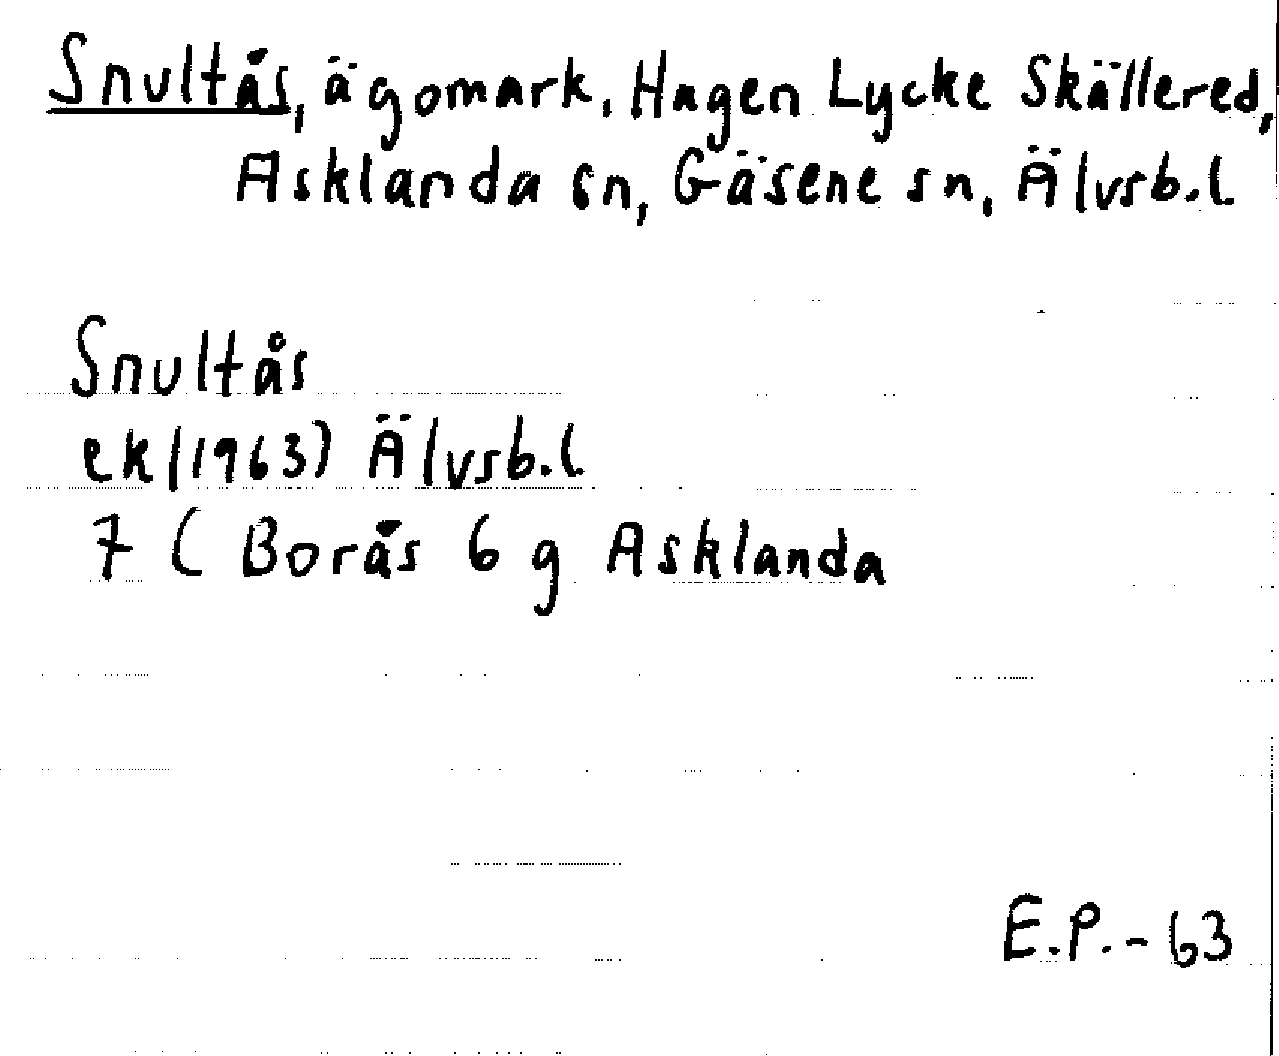 Snultås, ägomark, Hagen Lycke Skällered,
Asklanda sn, Gäsene sn, Älvsb.l.
Snultås
ek (1963) Älvsb.l
7 ( Borås 6 g Asklanda
E.P. - 63